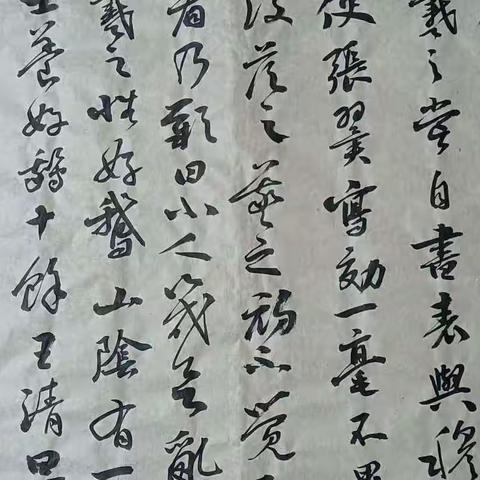 羲之常自書表與穆
使張翼寫効一毫不異
後答之羲之初不覺
看乃歎曰小人幾欲亂
羲之性好鵝山陰有一
士養好鵝十餘王清旦